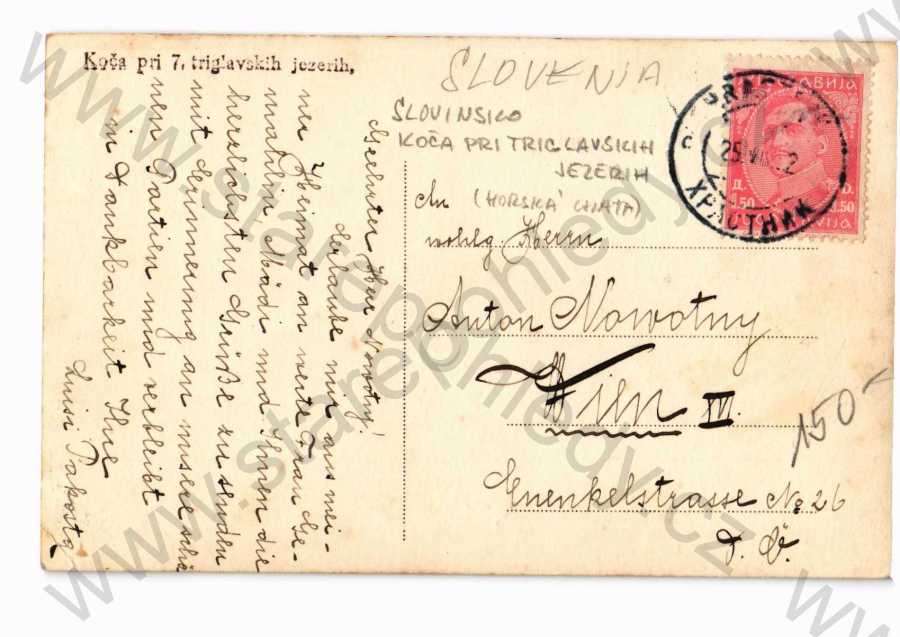 Koča pri 7. triglavskih jezerih,
SLOVENJA
SLOVINSKO
KOČA PRI TRIGLAVSKIH
JEZERIH
(HORSKÁ CHATA)
Geehrter Herr Nowotny!
Erlaube mir aus mei-
ner Heimat an werte Frau Ge-
mahlin Mädi und Ihnen die
herzlichsten Grüße zu senden
mit Erinnerung an unsere schö-
nen Partien und verbleibt
in Dankbarkeit Ihre
Luisi Pakosta
An
wohlg. Herrn
Anton Nowotny
Wien IV.
Enenkelstrasse No 26
D. Ö.
150-
ХРАСТНИК
Д. D.
1.50 1.50
www.starepohledy.cz